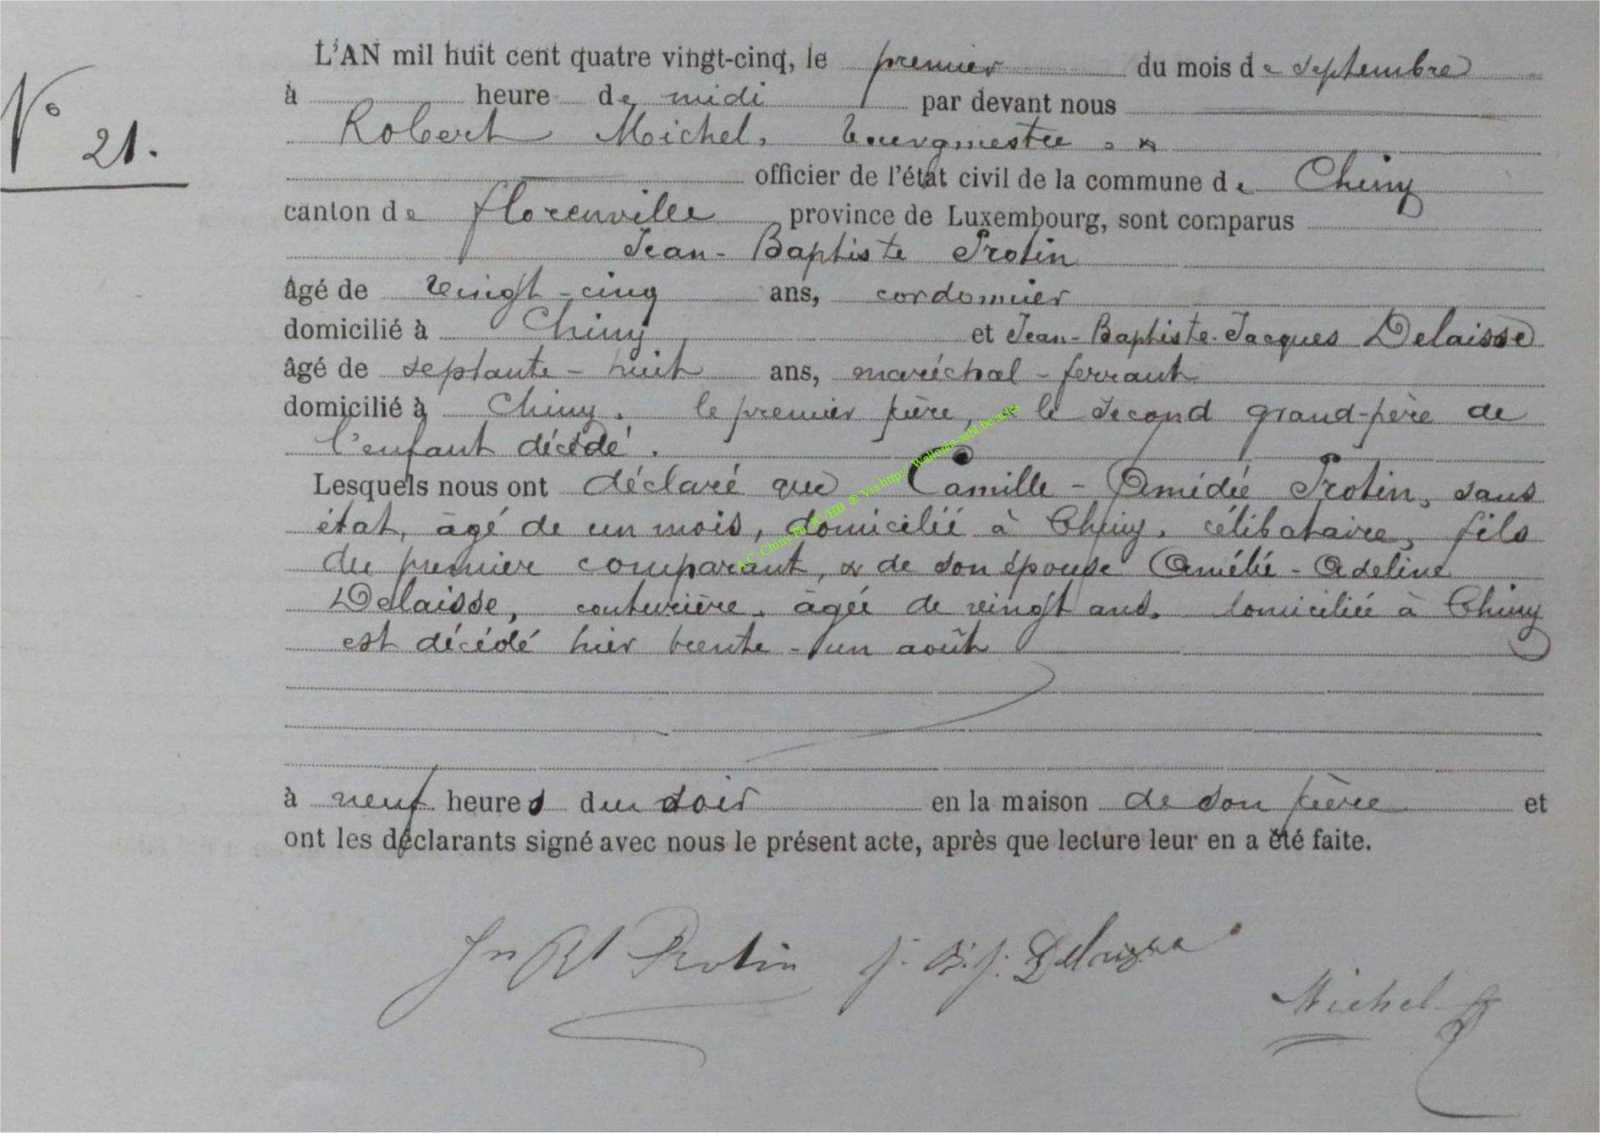 L'AN mil huit cent quatre vingt-cinq, le premier du mois de septembre
N° 21.
à heure de midi par devant nous
Robert Michel, bourgmestre
officier de l'état civil de la commune de Chiny
canton de florenville province de Luxembourg, sont comparus
Jean-Baptiste Protin
âgé de vingt-cinq ans, cordonnier
domicilié à Chiny et Jean-Baptiste-Jacques Delaisse
âgé de septante-huit ans, maréchal-ferrant
domicilié à Chiny, le premier père, le second grand-père de
l'enfant décédé.
Lesquels nous ont déclaré que Camille-Amédée Protin, sans
état, âgé de un mois, domicilié à Chiny, célibataire, fils
du premier comparant, & de son épouse Amélie-Adeline
Delaisse, couturière, âgée de vingt ans, domiciliée à Chiny
est décédé hier trente-un août
à neuf heures du soir en la maison de son père et
ont les déclarants signé avec nous le présent acte, après que lecture leur en a été faite.
Jn Bt Protin J. B. J. Delaisse
Michel R